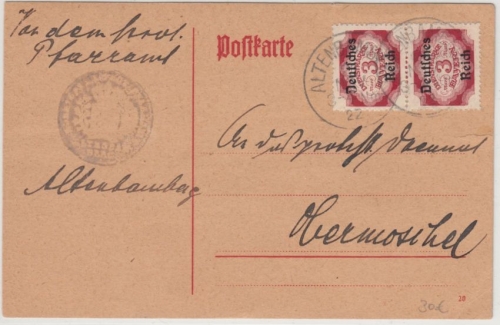 Von dem prot.
Pfarramt
Altenbamberg
Postkarte
ALTENBA
22
Deutsches Reich
3
Deutsches Reich
3
An das protest.
Obermoschel
30€